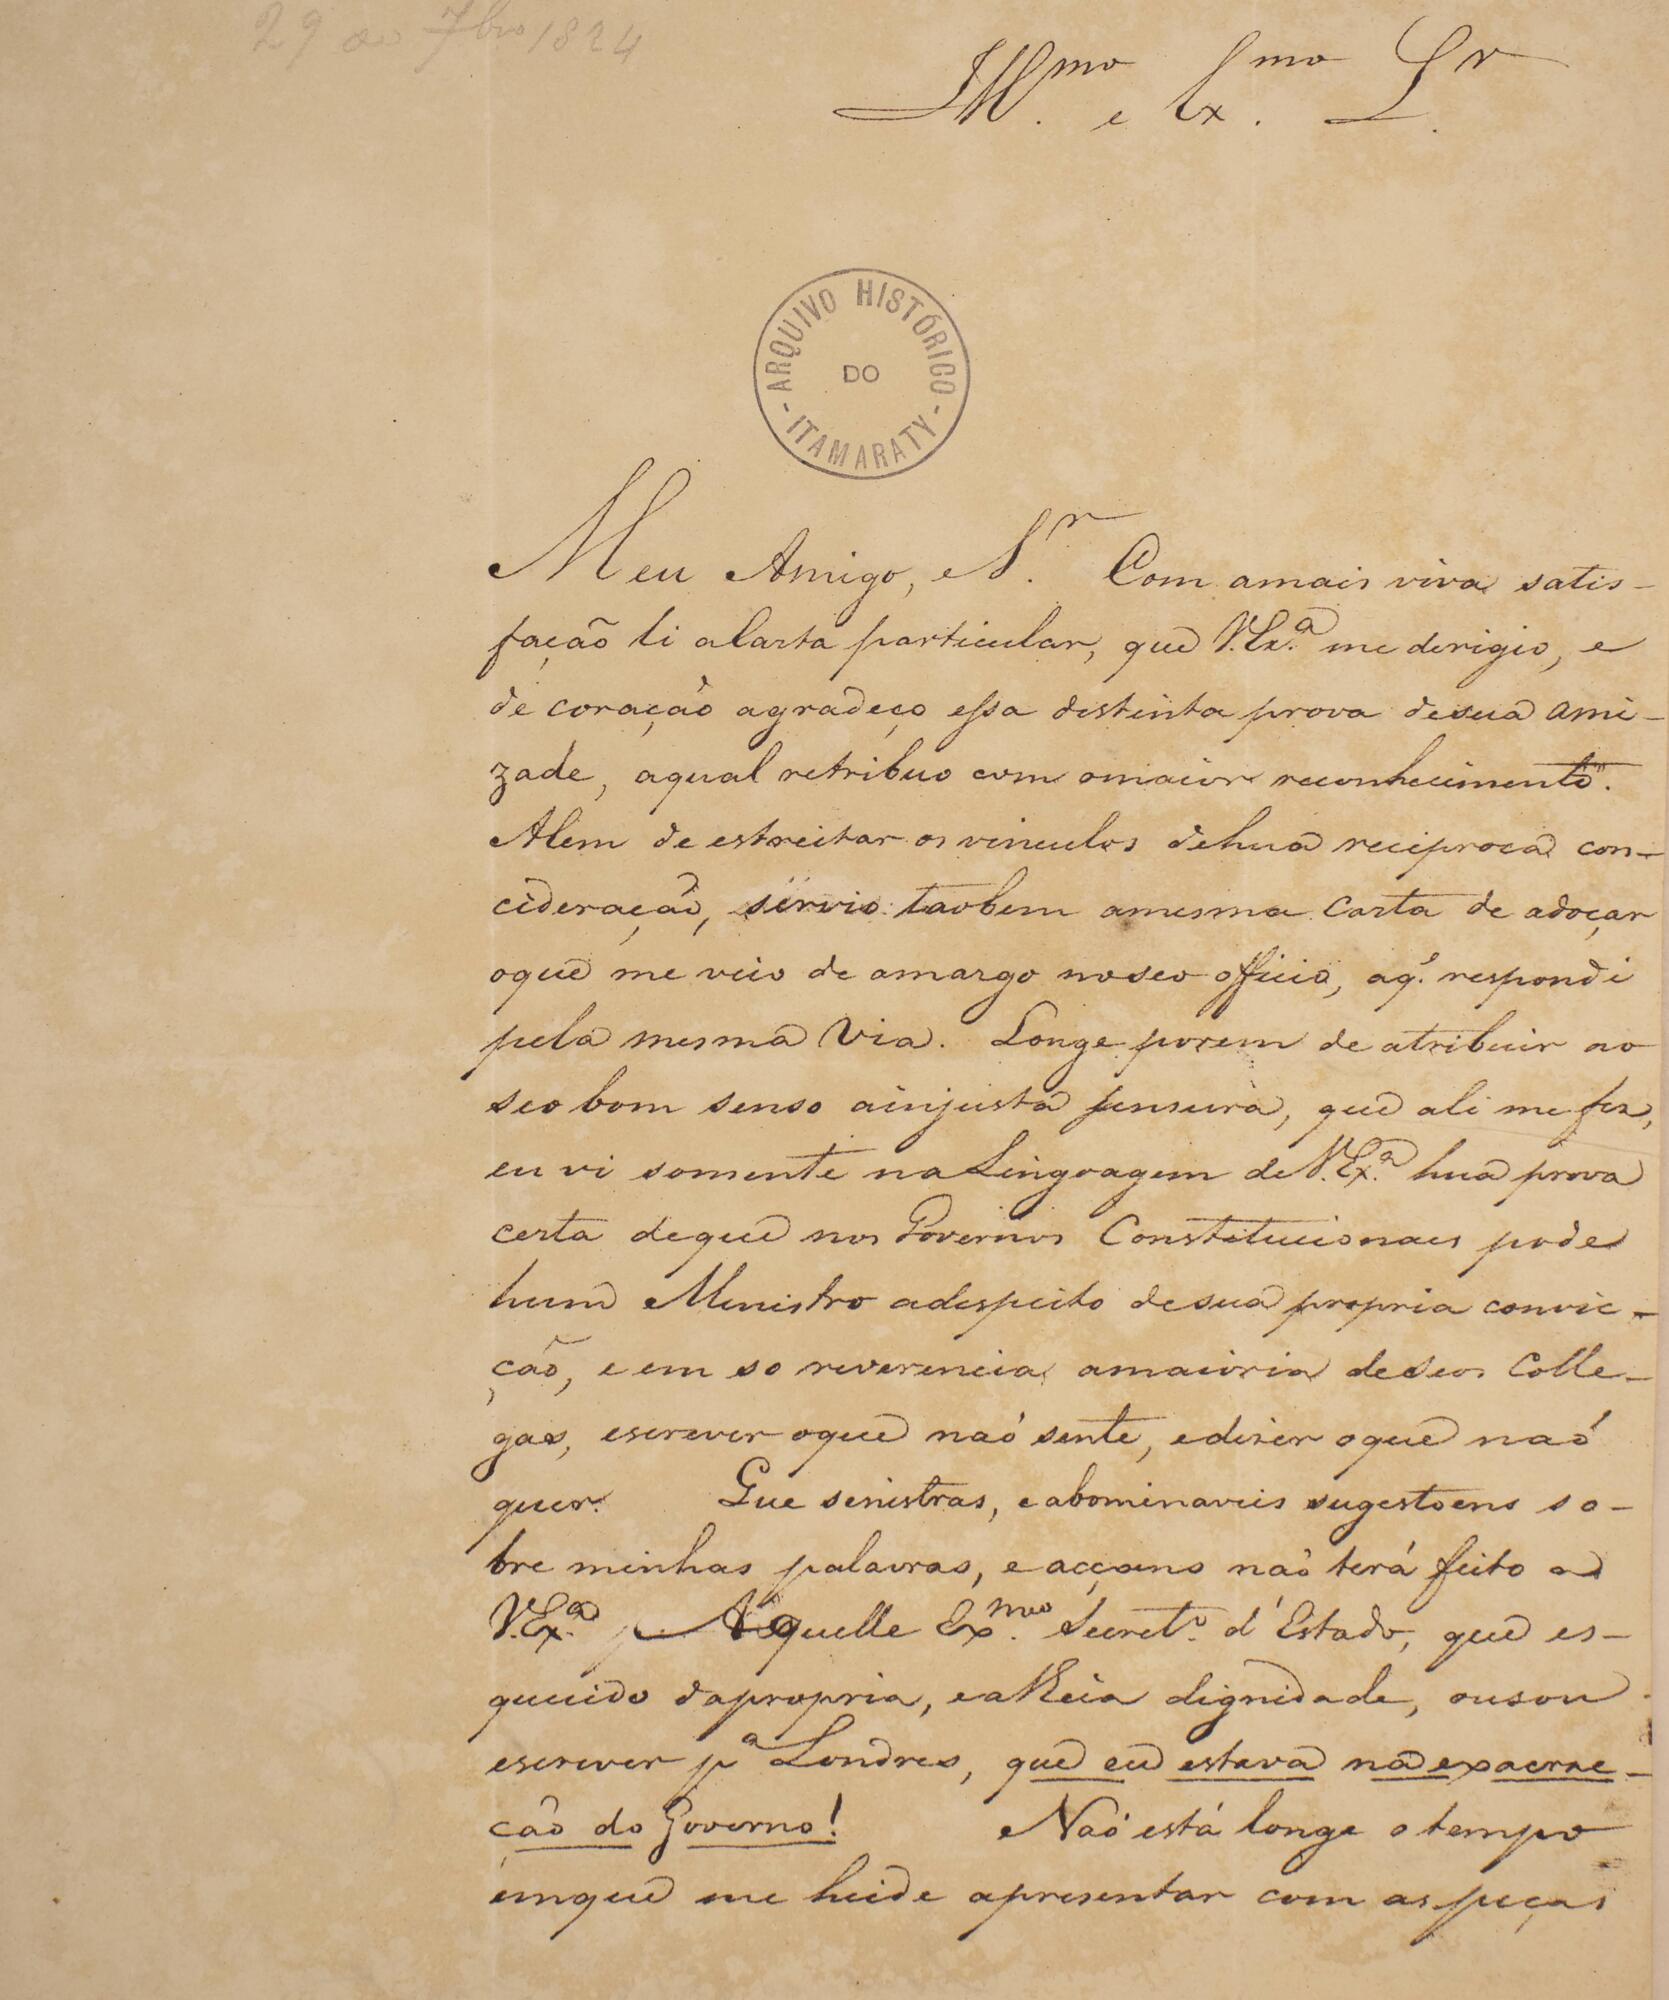 29 de 7bro 1824
Illmo. e Exmo. Sr.
ARQUIVO HISTÓRICO
DO
ITAMARATY
Meu Amigo, e Sr. Com amais viva satis-
fação li a Carta particular, que V.Exa. me derigio, e
de coração agradeço essa distinta prova desua ami-
zade, aqual retribuo com omaior reconhecimento.
Alem de estreitar os vinculos dehua reciproca con-
cideração, servio taobem amesma Carta de adoçar
oque me veio de amargo noseo officio, aq' respondi
pela mesma via. Longe porem de atribuir ao
seo bom senso ainjusta sensura, que ali me fez,
eu vi somente na Lingoagem de V.Exa. hua prova
certa deque nos Governos Constitucionaes pode
hum Ministro adespeito desua propria convic-
ção, e em so reverencia amaioria deseos Colle-
gas, escrever oque naó sente, edizer oque naó
quer. Que sinistras, e abominaveis sugestoens so-
bre minhas palavras, e acçoens naó terá feito a
V.Exa. Aquelle Exmo. Secreto. d'Estado, que es-
quecido dapropria, e aLheia dignidade, ousou
escrever pa Londres, que eu estava na exacrac-
ção do Governo! Naó está longe o tempo
emque me heide apresentar com as peças